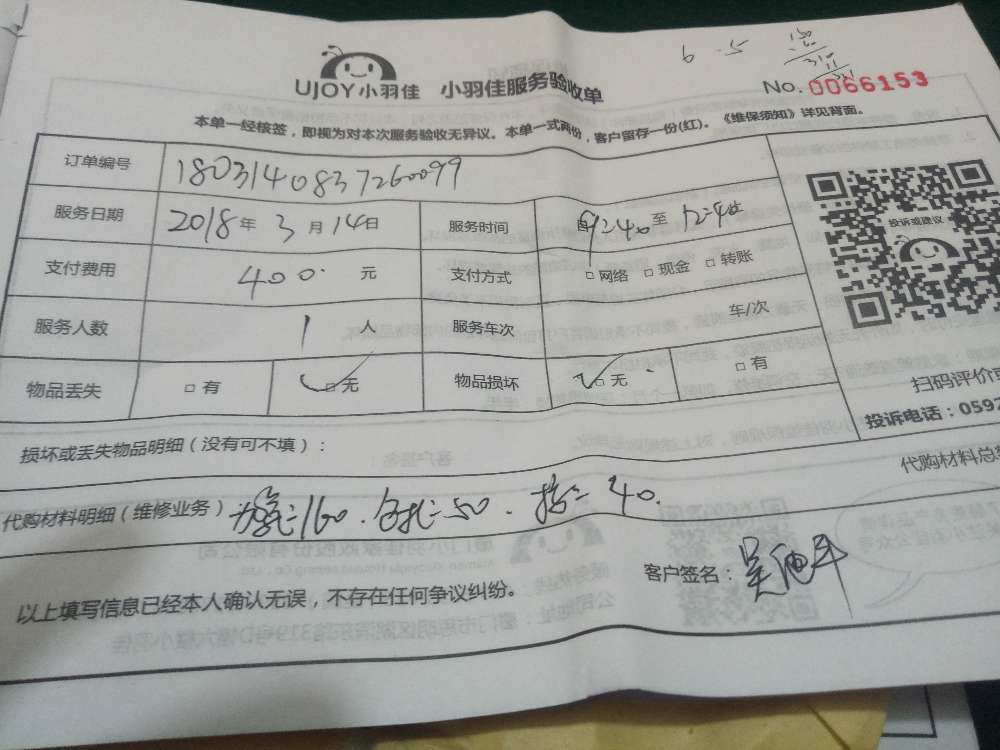 UJOY小羽佳 小羽佳服务验收单
No. 0066153
本单一经核签，即视为对本次服务验收无异议。本单一式两份，客户留存一份(红)。《维保须知》详见背面。
订单编号 1803140837260099
服务日期 2018年3月14日 服务时间 至
投诉或建议
支付费用 400 元 支付方式 □网络 □现金 □转账
服务人数 1 人 服务车次 车/次
物品丢失 □有 □无 物品损坏 □无 □有
扫码评价
投诉电话：059
损坏或丢失物品明细（没有可不填）：
代购材料总
代购材料明细（维修业务） 160 50 40
客户签名：
以上填写信息已经本人确认无误，不存在任何争议纠纷。